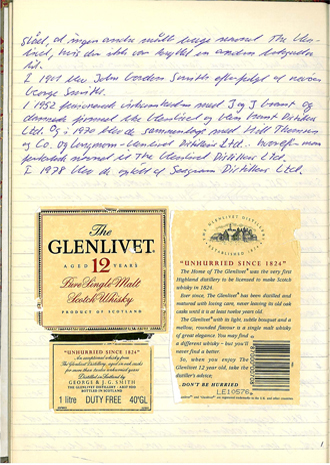 slået, at ingen andre måtte bruge navnet The Glen-
livet, hvis det ikke var knyttet en anden
til.
I 1901 blev John Gordon Smith efterfulgt af nevøen
George Smith.
I 1952 fusionerede virksomheden med J og J Grant og
dannede firmaet The Glenlivet og Glen Grant Distillers
Ltd. Og i 1970 blev de sammenlagt med Hill Thomson
og Co. og Longmorn-Glenlivet Distillers Ltd..
navnet The Glenlivet Distillers Ltd.
I 1978 blev de opkøbt af Seagram Distillers Ltd.
The
GLENLIVET.
AGED 12 YEARS
Pure Single Malt
Scotch Whisky
PRODUCT OF SCOTLAND
"UNHURRIED SINCE 1824"
An exceptional whisky from
The Glenlivet Distillery, aged in oak casks
for more than twelve unhurried years
Distilled in Scotland by
GEORGE & J.G. SMITH
THE GLENLIVET DISTILLERY
BOTTLED IN SCOTLAND
1 litre DUTY FREE 40°GL
THE GLENLIVET DISTILLERY
ESTABLISHED 1824
"UNHURRIED SINCE 1824"
The Home of The Glenlivet® was the very first
Highland distillery to be licensed to make Scotch
whisky in 1824.
Ever since, The Glenlivet® has been distilled and
matured with loving care, never leaving its old oak
casks until it is at least twelve years old.
The Glenlivet® with its light, subtle bouquet and a
mellow, rounded flavour is a single malt whisky
of great elegance. You may find
a different whisky - but you'll
never find a better.
So, when you enjoy The
Glenlivet 12 year old, take the
distiller's advice;
..DON'T BE HURRIED
LE10576